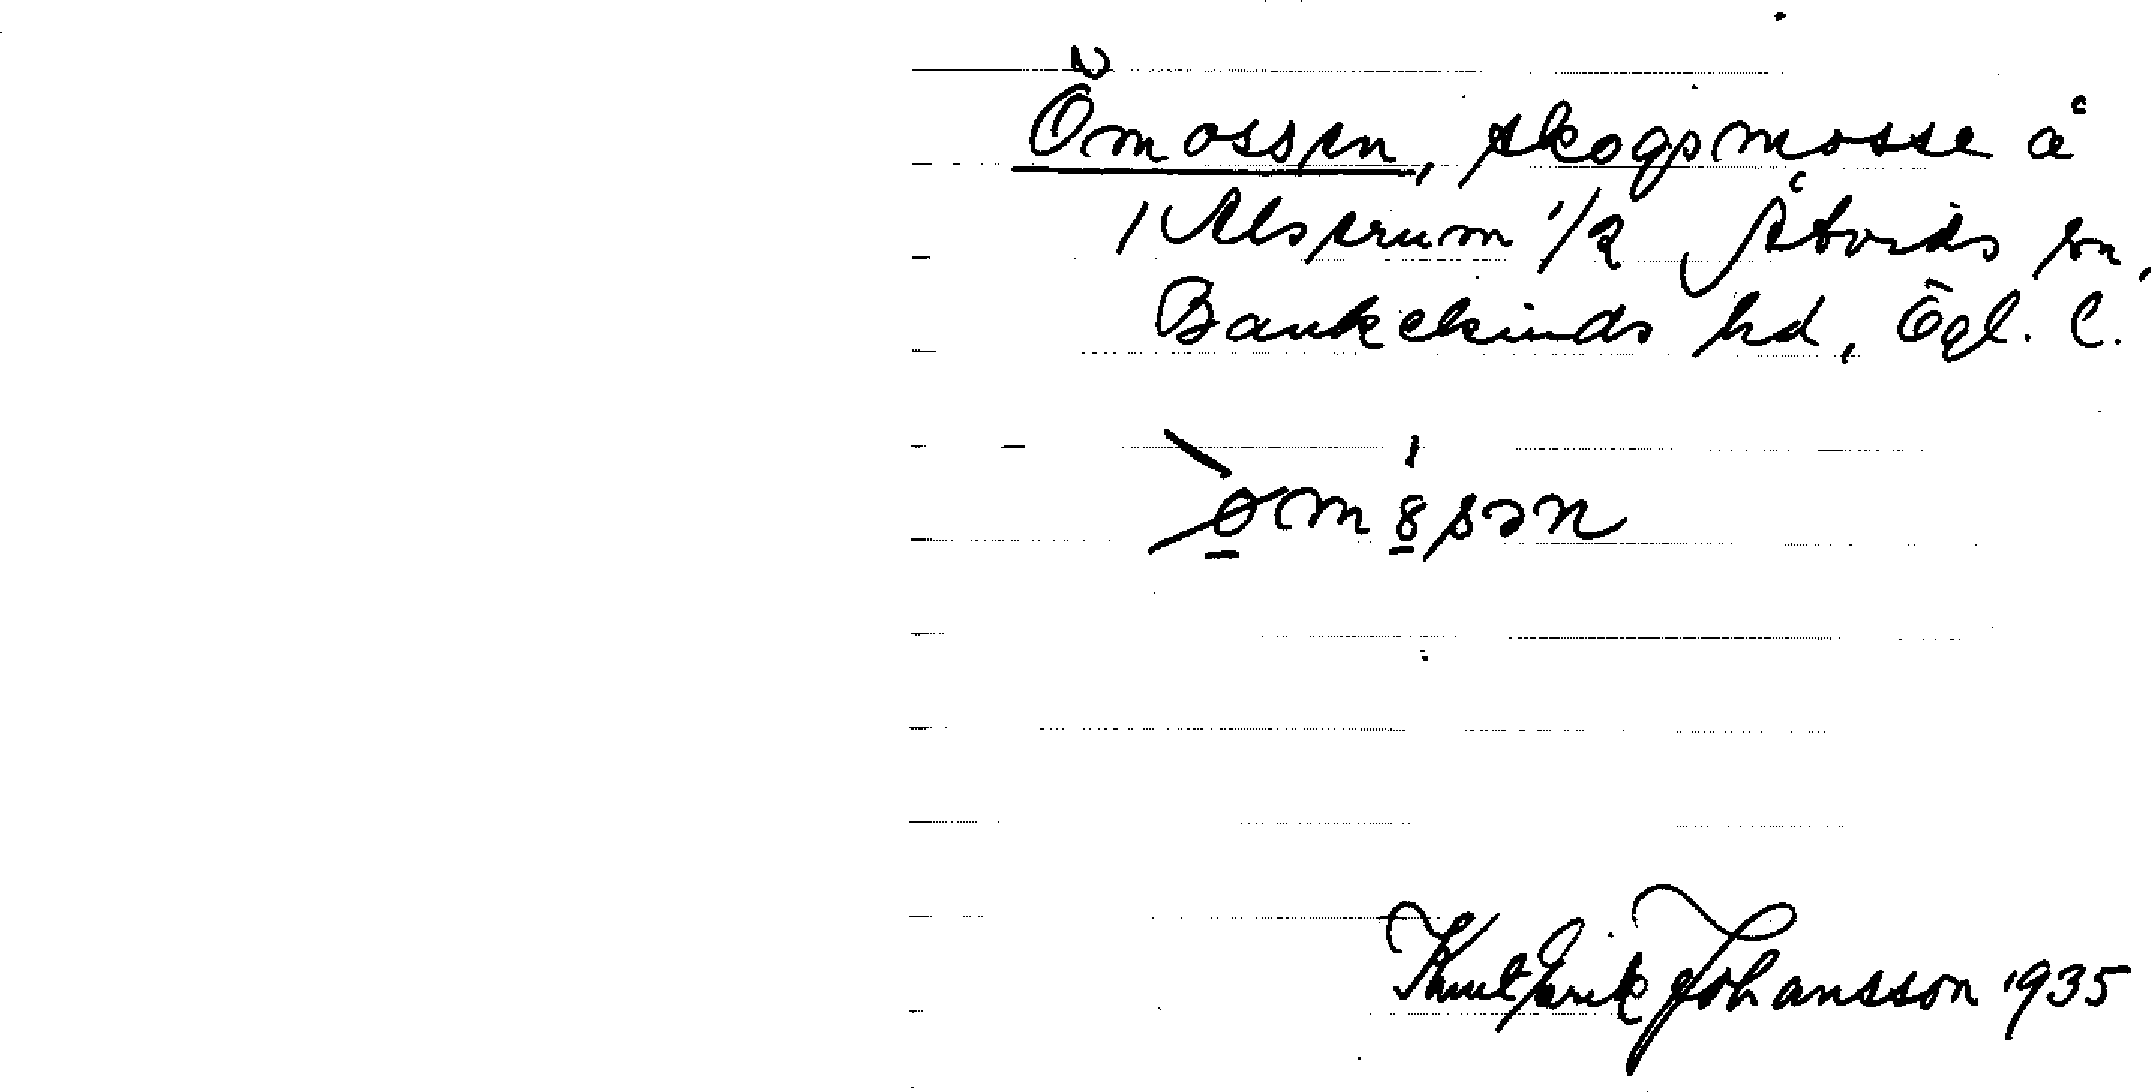 Ömossen, skogsmosse å
Alserum 1/2 Åtvids sn,
Bankekinds hd, Ögl. l.
Knut Erik Johansson 1935